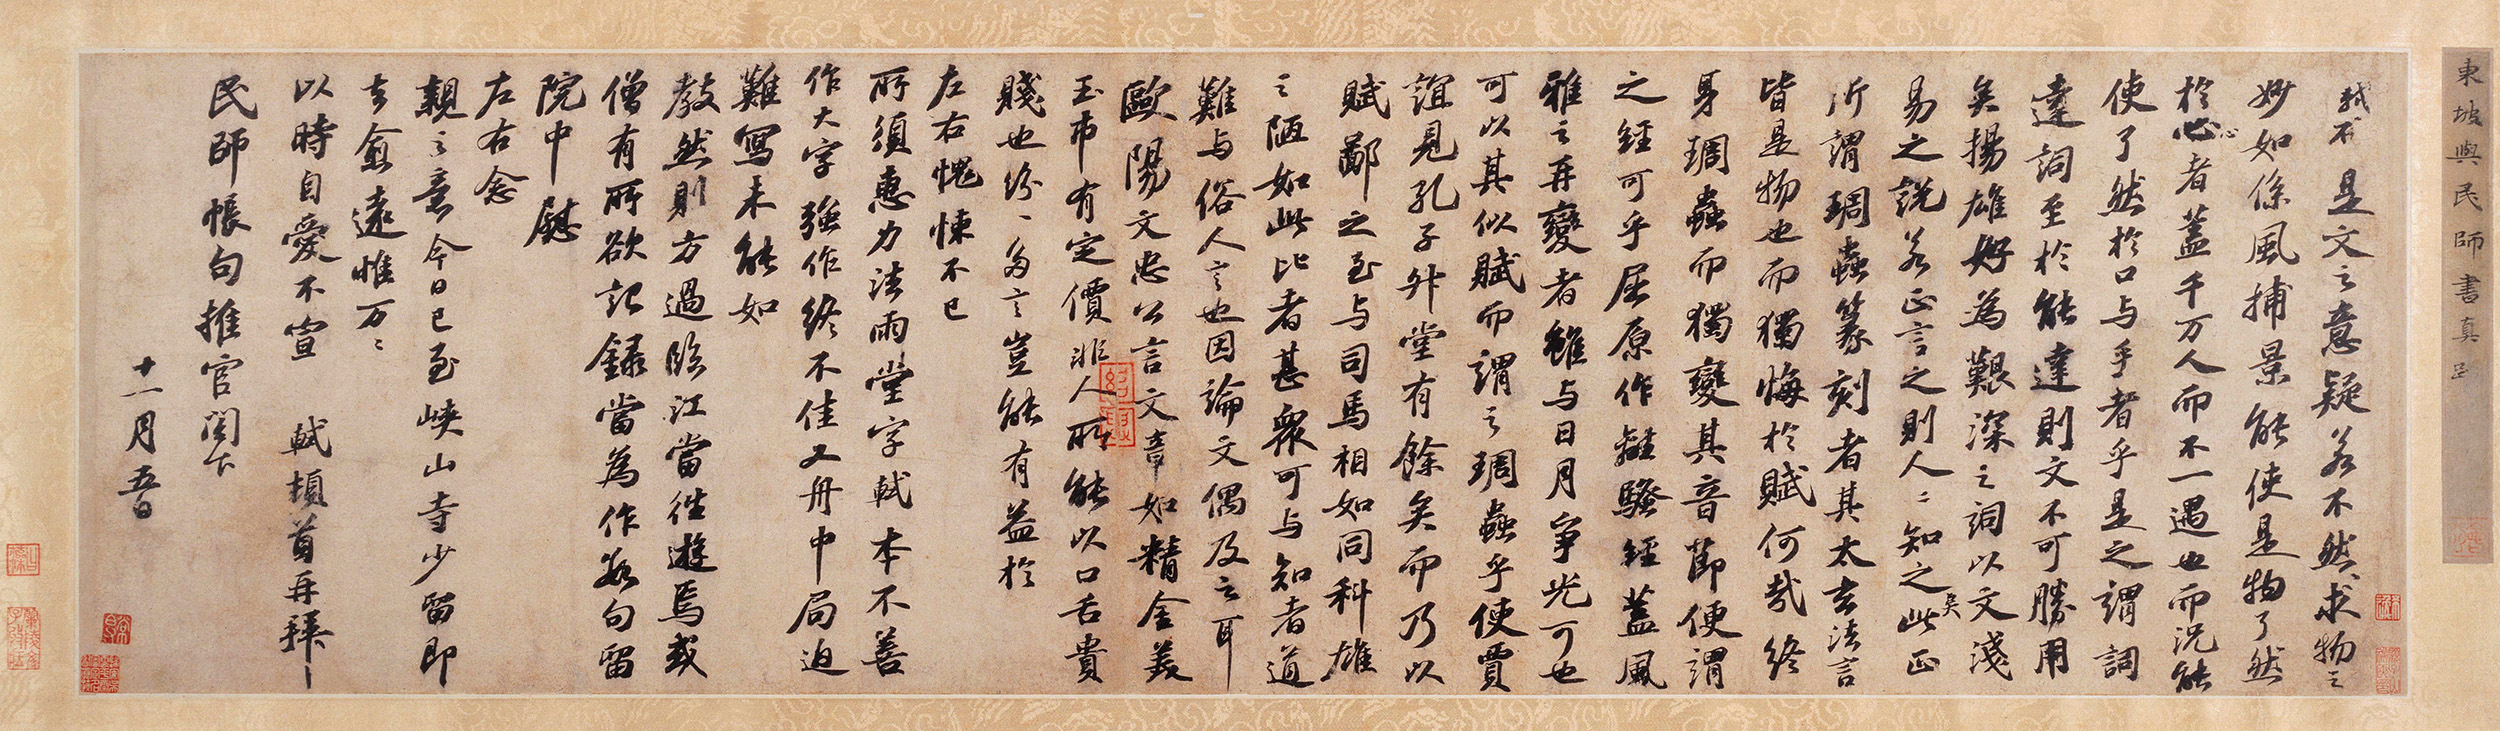 東坡與民師書真跡
軾不
是文之意疑若不然求物之
妙如係風捕景能使是物了然
於心者蓋千万人而不一遇也而況能
使了然於口与手者乎是之謂詞
達詞至於能達則文不可勝用
矣揚雄好為艱深之詞以文淺
易之說若正言之則人〻知之矣此正
所謂琱蟲篆刻者其太玄法言
皆是物也而獨悔於賦何哉終
身琱蟲而獨變其音節便謂
之經可乎屈原作離騷經蓋風
雅之再變者雖与日月爭光可也
可以其似賦而謂之琱蟲乎使賈
誼見孔子升堂有餘矣而乃以
賦鄙之至与司馬相如同科雄
之陋如此比者甚衆可与知者道
難与俗人言也因論文偶及之耳
歐陽文忠公言文章如精金美
玉市有定價非人所能以口舌貴
賤也紛〻多言豈能有益於
左右愧悚不已
所須惠力法雨堂字軾本不善
作大字強作終不佳又舟中局迫
難寫未能如
教然則方過臨江當往遊焉或
僧有所欲記錄當為作數句留
院中慰
左右念
親之意今日已至峽山寺少留即
去愈遠惟万〻
以時自愛不宣 軾頓首再拜
民師帳句推官閣下
十一月五日